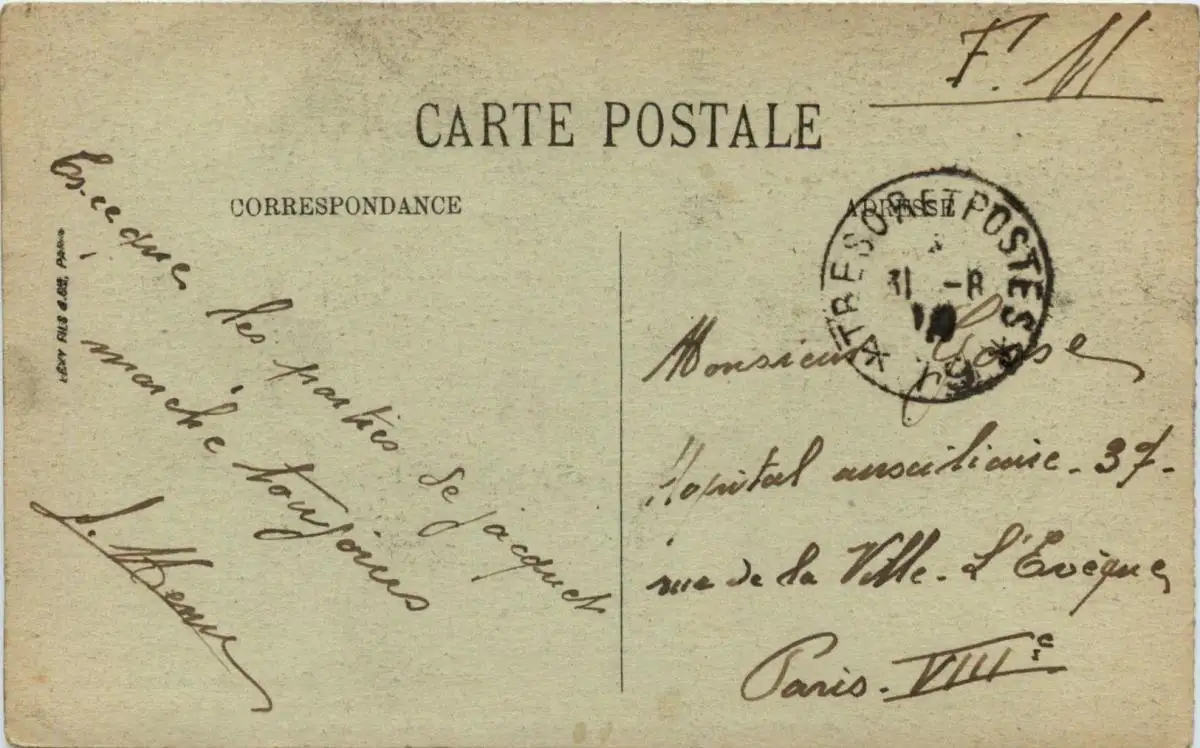 F. M
CARTE POSTALE
CORRESPONDANCE
ADRESSE
TRESOR ET POSTES
31 -8
Es-ce que les parties de jacquet
marche toujours
LÉVY FILS & Cie, PARIS
Monsieur
Hopital auxiliaire - 37 -
rue de la Ville - L'Evèque
Paris - VIIIe